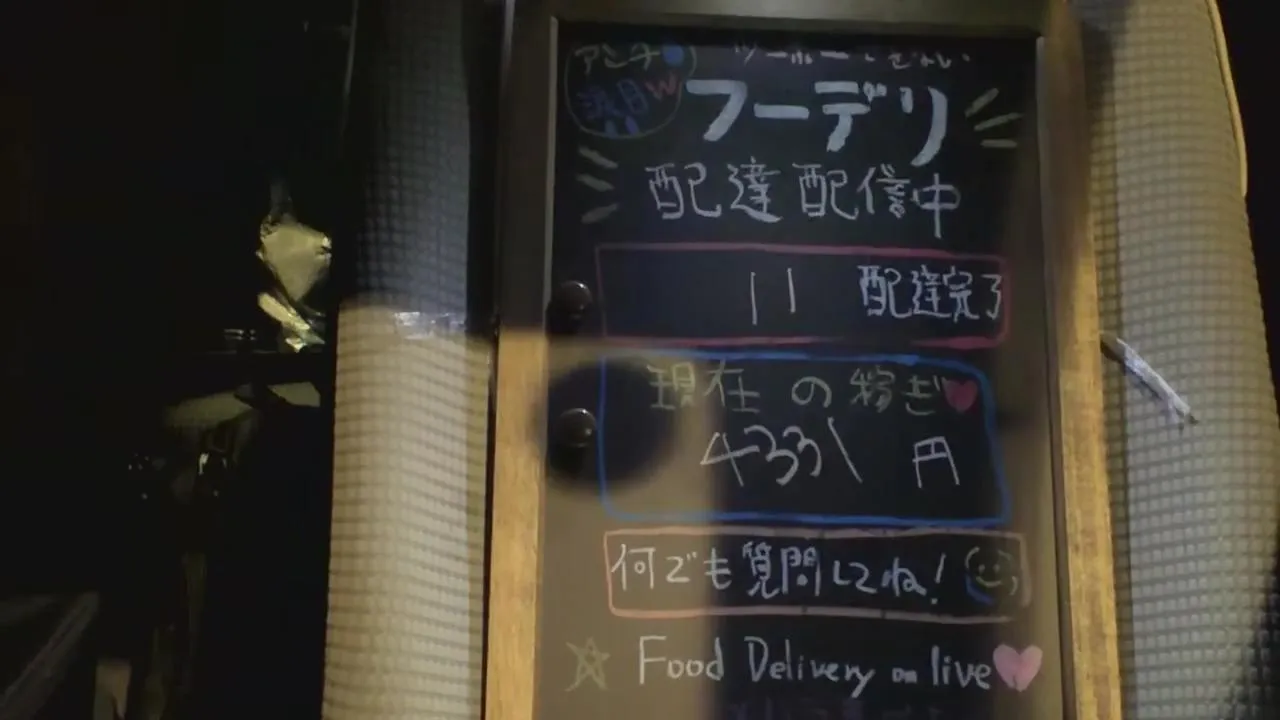 アンチ
W
フーデリ
配達配信中
11 配達完了
現在の稼ぎ
4331 円
何でも質問してね!
Food Delivery on live